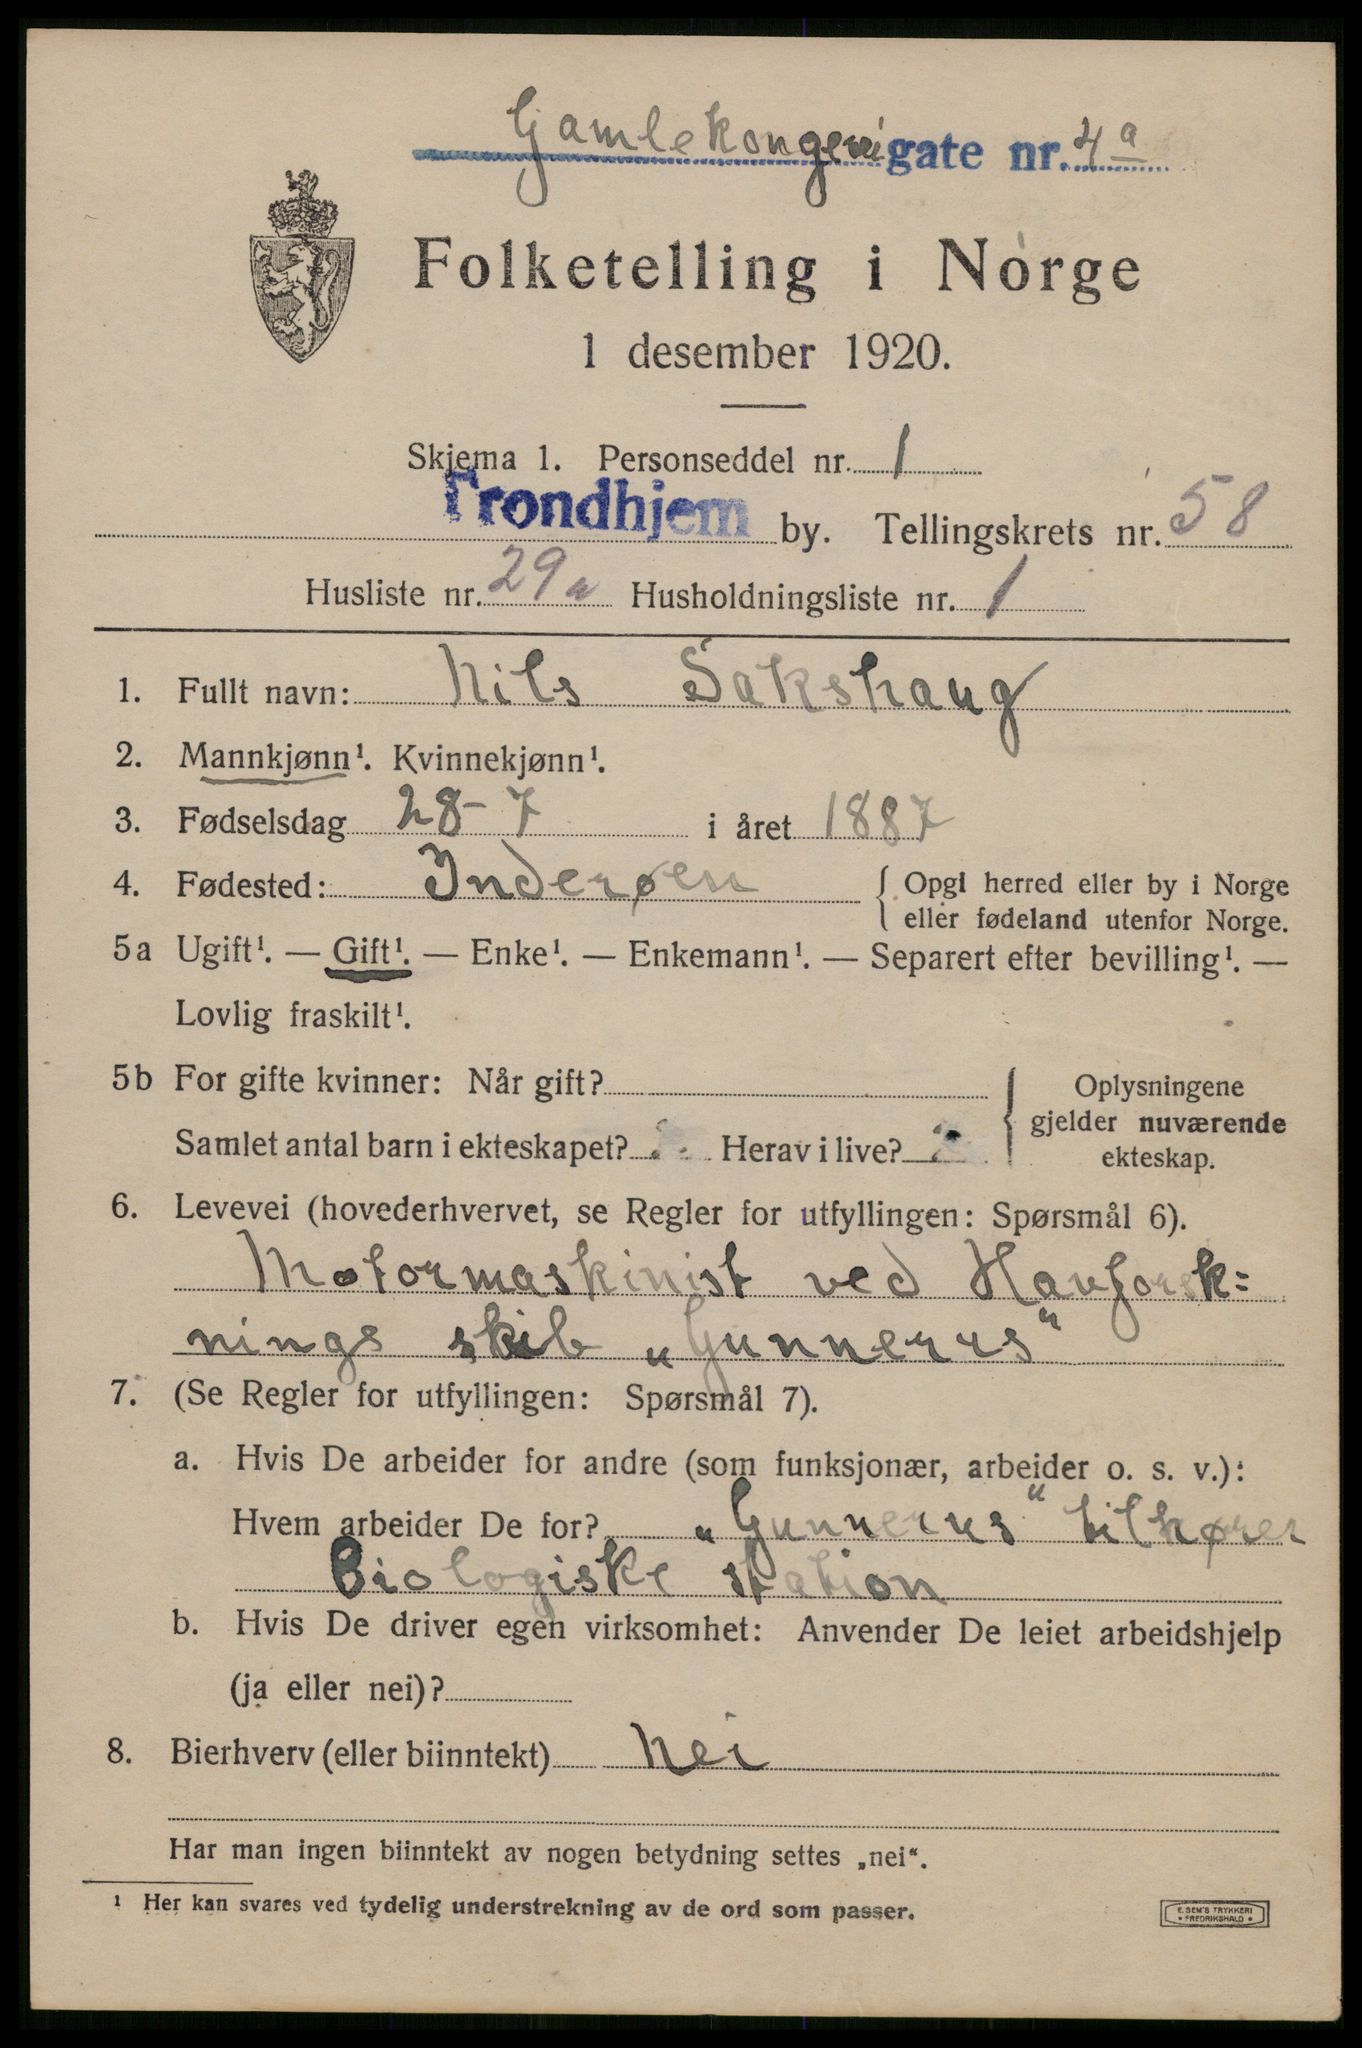 Gamlekongevei gate nr. 4a
Folketelling i Norge
1 desember 1920.
Skjema 1. Personseddel nr. 1
Trondhjem by. Tellingskrets nr. 58
Husliste nr. 29a Husholdningsliste nr. 1
1. Fullt navn: Nils Sakshaug
2. Mannkjønn¹. Kvinnekjønn¹.
3. Fødselsdag 28-7 i året 1887
4. Fødested: Inderøen { Opgi herred eller by i Norge
eller fødeland utenfor Norge.
5a Ugift¹. — Gift¹. — Enke¹. — Enkemann¹. — Separert efter bevilling¹. —
Lovlig fraskilt¹.
5b For gifte kvinner: Når gift?
Samlet antal barn i ekteskapet? 2 Herav i live? 2
{ Oplysningene
gjelder nuværende
ekteskap.
6. Levevei (hovederhvervet, se Regler for utfyllingen: Spørsmål 6).
Motormaskinist ved Havforsk=
nings skib „Gunnerus"
7. (Se Regler for utfyllingen: Spørsmål 7).
a. Hvis De arbeider for andre (som funksjonær, arbeider o. s. v.):
Hvem arbeider De for? „Gunnerus" tilhører
Biologiske station
b. Hvis De driver egen virksomhet: Anvender De leiet arbeidshjelp
(ja eller nei)?
8. Bierhverv (eller biinntekt) Nei
Har man ingen biinntekt av nogen betydning settes „nei".
¹ Her kan svares ved tydelig understrekning av de ord som passer.
E. SEM'S TRYKKERI
• FREDRIKSHALD •